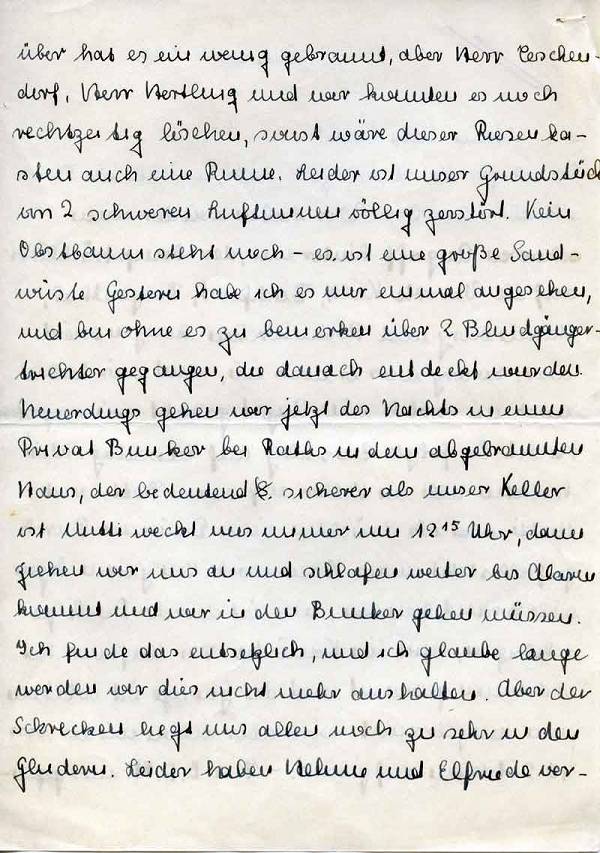 über hat es ein wenig gebrannt, aber Herr Teschen-
dorf, Herr Hertling und wir konnten es noch
rechtzeitig löschen, sonst wäre dieser Riesenka-
sten auch eine Ruine. Leider ist unser Grundstück
von 2 schweren Luftminen völlig zerstört. Kein
Obstbaum steht noch – es ist eine große Sand-
wüste Gestern habe ich es nur einmal angesehen,
und bin ohne es zu bemerken über 2 Blindgänger-
trichter gegangen, die danach entdeckt wurden.
Neuerdings gehen wir jetzt des Nachts in einen
Privat Bunker bei Raths in dem abgebrannten
Haus, der bedeutend sicherer als unser Keller
ist Mutti weckt uns immer um 12 15 Uhr, dann
ziehen wir uns an und schlafen weiter bis Alarm
kommt und wir in den Bunker gehen müssen.
Ich finde das entsetzlich, und ich glaube lange
werden wir dies nicht mehr aushalten. Aber der
Schrecken liegt uns allen noch zu sehr in den
Gliedern. Leider haben und Elfriede ver-